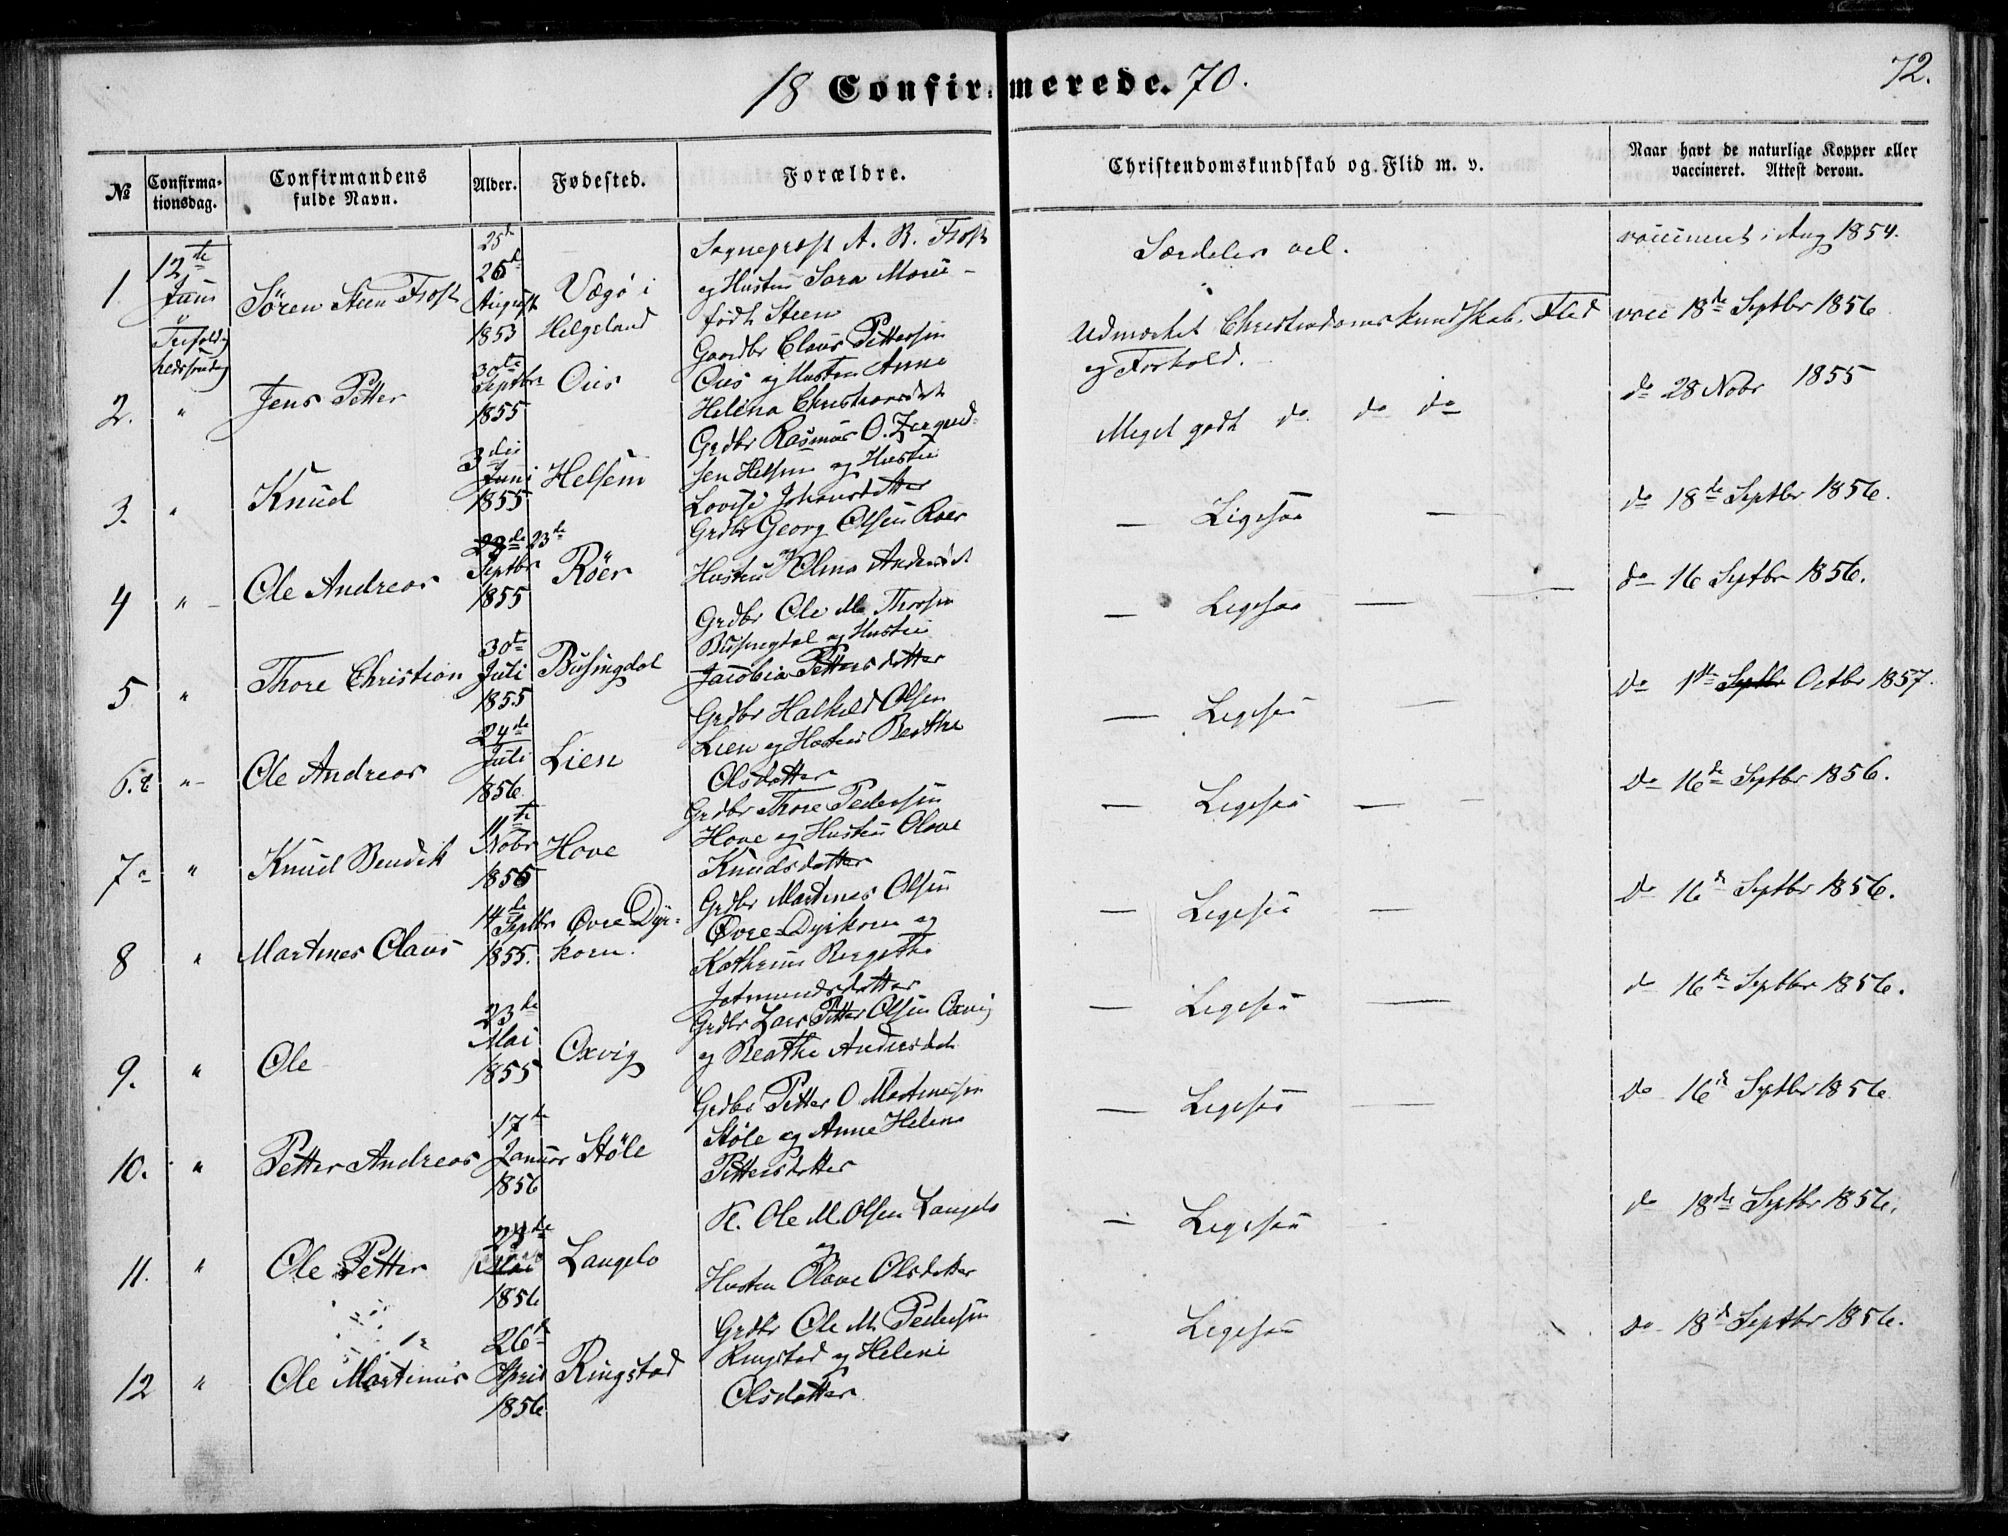 72.
18 Confirmerede. 70.
№
Confirma-
tionsdag.
Confirmandens
fulde Navn.
Alder.
Fødested.
Forældre.
Christendomskundskab og Flid m. v.
Naar havt de naturlige Kopper eller
vaccineret. Attest derom.
1.
12te
Juni
Søren Steen Frost
25d
August
1853
Vegø i
Helgeland
Sogneprest A. R. Frost
og Hustru Sara Marie
født Steen
Særdeles vel.
vaccineret i Aug 1854.
2.
"
Jens Petter
30te
Septbr
1855
Ous
Gaardbr Claus Pettersen
Ous og Hustru Anne
Helena Christiansdt
Udmærket Christendomskundskab. Flid
og Forhold.
vacc 18de Septbr 1856
3.
"
Knud
3die
Juni
1855
Helsem
Grdbr Rasmus O.
sen Helsem og Hustru
Lovise Johansdatter
Meget godt do do do
do 28 Nobr 1855
4
"
Ole Andreas
23de
Septbr
1855
Röer
Grdbr Georg Olsen Roer
og
Hustru Olina Andersdt
— Ligesaa —
do 18de Septbr 1856.
5
"
Thore Christian
30te
Juli
1855
Busingdal
Grdbr Ole M. Thorsen
Busengdal og Hustru
Jacobia Pettersdatter
— Ligesaa —
do 16 Septbr 1856.
6.
"
Ole Andreas
24de
Juli
1856
Lien
Grdbr Halkild Olsen
Lien og Hustru Berthe
Olsdatter
— Ligesaa —
do 1ste Septbr Octbr 1857.
7
"
Knud Bendik
11te
Nobr
1855
Hove
Grdbr Thore Pedersen
Hove og Hustru Olave
Knudsdatter
— Ligesaa —
do 16de Septbr 1856.
8
"
Martines Claus
14de
Septbr
1855.
Øvre Dyr-
korn.
Grdbr Martines Olsen
Øvre-Dyrkorn og
Kathrine Bergithe
Jetmundsdatter
— Ligesaa —
do 16de Septbr 1856.
9.
"
Ole
23de
Mai
1855
Oxvig
Grdbr Lars Petter Olsen Oxvig
og Beathe Andersdt
— Ligesaa —
do 16de Septbr 1856.
10.
"
Petter Andreas
17de
Januar
1856
Støle
Grdbr Petter O Martinesen
Støle og Anne Helene
Pettersdatter
— Ligesaa —
do 16de Septbr 1856.
11.
"
Ole Petter
Mai
1856
Langelo
Ole M. Olsen Langelo
og
Hustru Olave Olsdatter
— Ligesaa
do 18de Septbr 1856.
12
"
Ole Martinus
26de
April
1856
Ringstad
Grdbr Ole M. Pedersen
Ringstad og Helene
Olsdatter
Ligesaa
do 18de Septbr 1856.